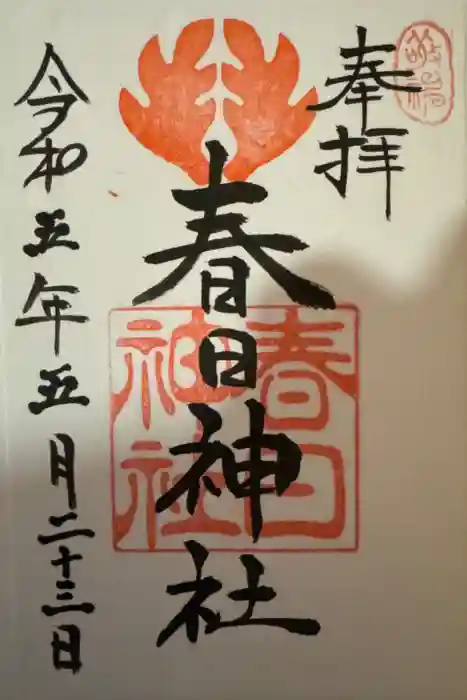 奉拝
春日神社
春日
神社
令和五年五月二十三日